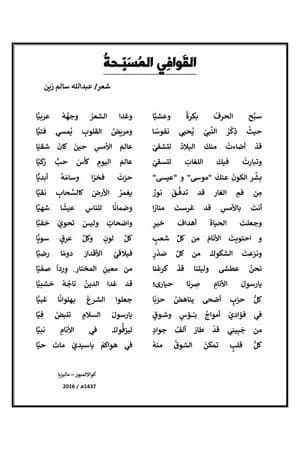 القَوافي المُسَبِّحةُ
شعر/ عبدالله سالم زين
سبّح الحرفُ بكرةً وعشيّا وغدا الشعرُ وجهُهُ عربيّا
حيثُ ذِكْرُ النّبيّ يُحيي نفوسًا ومريضُ القلوبِ يُمسي فتيّا
قد أضاءتْ منكَ البلادُ لتشفي عالمَ الأمسِ حينَ كانَ شقيّا
وتبارتْ فيكَ اللغاتُ لتسقي عالمَ اليومِ كأسَ حبٍّ زكيّا
بشّر الكونُ عنكَ "موسى" و "عيسى" حزتَ فخرًا وسامُهُ أبديّا
مِن فمِ الغارِ قد تدفّقَ نورٌ يغمرُ الأرضَ كالسّحابِ نقيّا
أنتَ بالأمسِ قد غرستَ منارًا وضمانًا للناسِ عيشًا شهيّا
وجعلتَ الحياةَ أهدافَ خيرٍ واضحاتٍ وليس تحوي خفيّا
و احتويتَ الأنامَ من كلّ شعبٍ كلّ لونٍ وكلّ عرقٍ سويّا
ونزعتَ الشكوكَ من كلّ صَدْرٍ فيلاقي الأقدارَ دومًا رضيّا
نحنُ عطشى وليتنا قدْ كرعْنا من معينِ المختارِ.. وِردًا صفيّا
يارسولَ الأنامِ صِرنا حيارى! قد غدا الدينُ تاجهُ خشبيّا
كلّ حزبٍ أضحى يناهضُ حزبًا جعلوا الشرعَ بهلوانًا غبيّا
في فؤادي أمواجُ بؤسٍ وشوقٍ يارسولَ السلامِ تلبضُ فيّا
من جَبيني قدْ طارَ ألفُ جوادٍ ليزفّوك في الأنامِ نبيّا
كلّ قلبٍ تمكنَ الشوقُ منهُ في هواكمْ ياسيدي ماتَ حيّا
كوالالمبور – ماليزيا
1437هـ / 2016